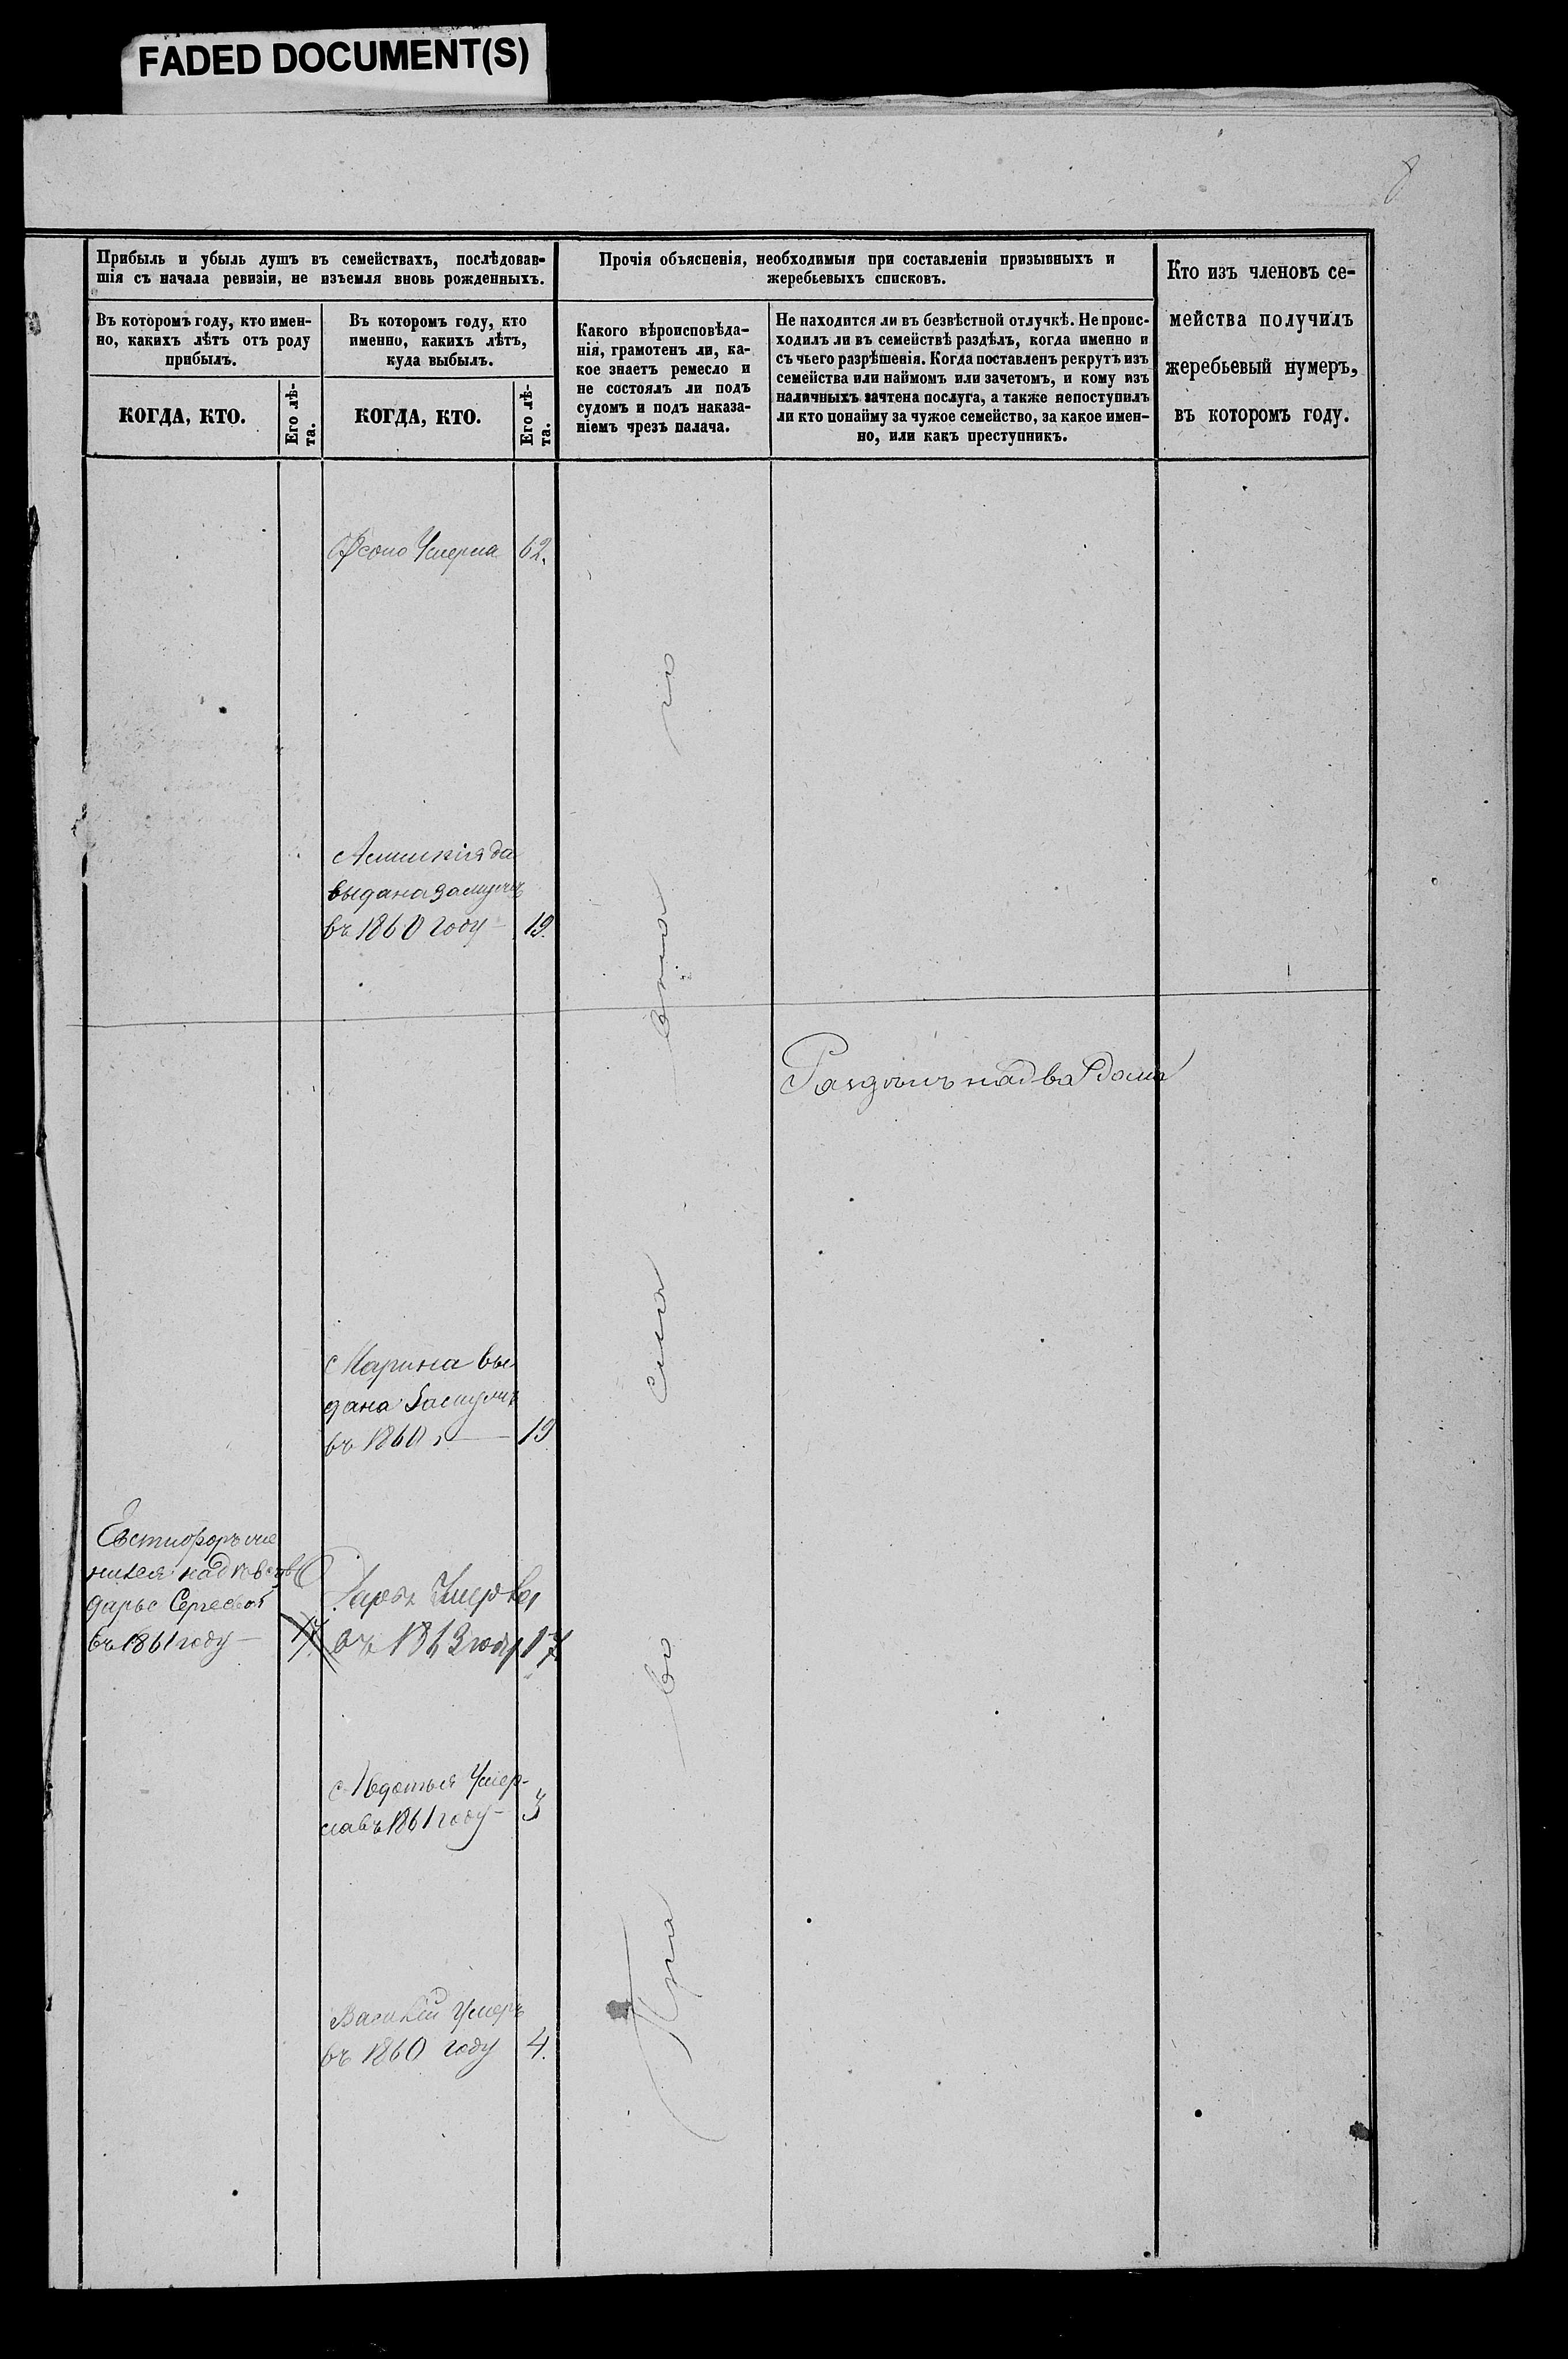 FADED DOCUMENT(S)
8
Прибыль и убыль душъ въ семействахъ, послѣдовав-
шія съ начала ревизіи, не изъемля вновь рожденныхъ.
Въ которомъ году, кто имен-
но, какихъ лѣтъ отъ роду
прибылъ.
КОГДА, КТО.
Его лѣ-
та.
Въ которомъ году, кто
именно, какихъ лѣтъ,
куда выбылъ.
КОГДА, КТО.
Его лѣ-
та.
Прочія объясненія, необходимыя при составленіи призывныхъ и
жеребьевыхъ списковъ.
Какого вѣроисповѣда-
нія, грамотенъ ли, ка-
кое знаетъ ремесло и
не состоялъ ли подъ
судомъ и подъ наказа-
ніемъ чрезъ палача.
Не находится ли въ безвѣстной отлучкѣ. Не проис-
ходилъ ли въ семействѣ раздѣлъ, когда именно и
съ чьего разрѣшенія. Когда поставленъ рекрутъ изъ
семейства или наймомъ или зачетомъ, и кому изъ
наличныхъ зачтена послуга, а также непоступилъ
ли кто понайму за чужое семейство, за какое имен-
но, или какъ преступникъ.
Кто изъ членовъ се-
мейства получилъ
жеребьевый нумеръ,
въ которомъ году.
Умерла 62.
выдана замужъ
въ 1860 году 19.
на два дома
Марина вы
дана замужъ
въ 1860 19
дарье Сергеевой
въ 1861 году 17
Дарья Умерла
въ 1863 году 17
Авдотья Умер-
ла въ 1861 году 3
Василій Умеръ
въ 1860 году 4.
Пра во сла вна го